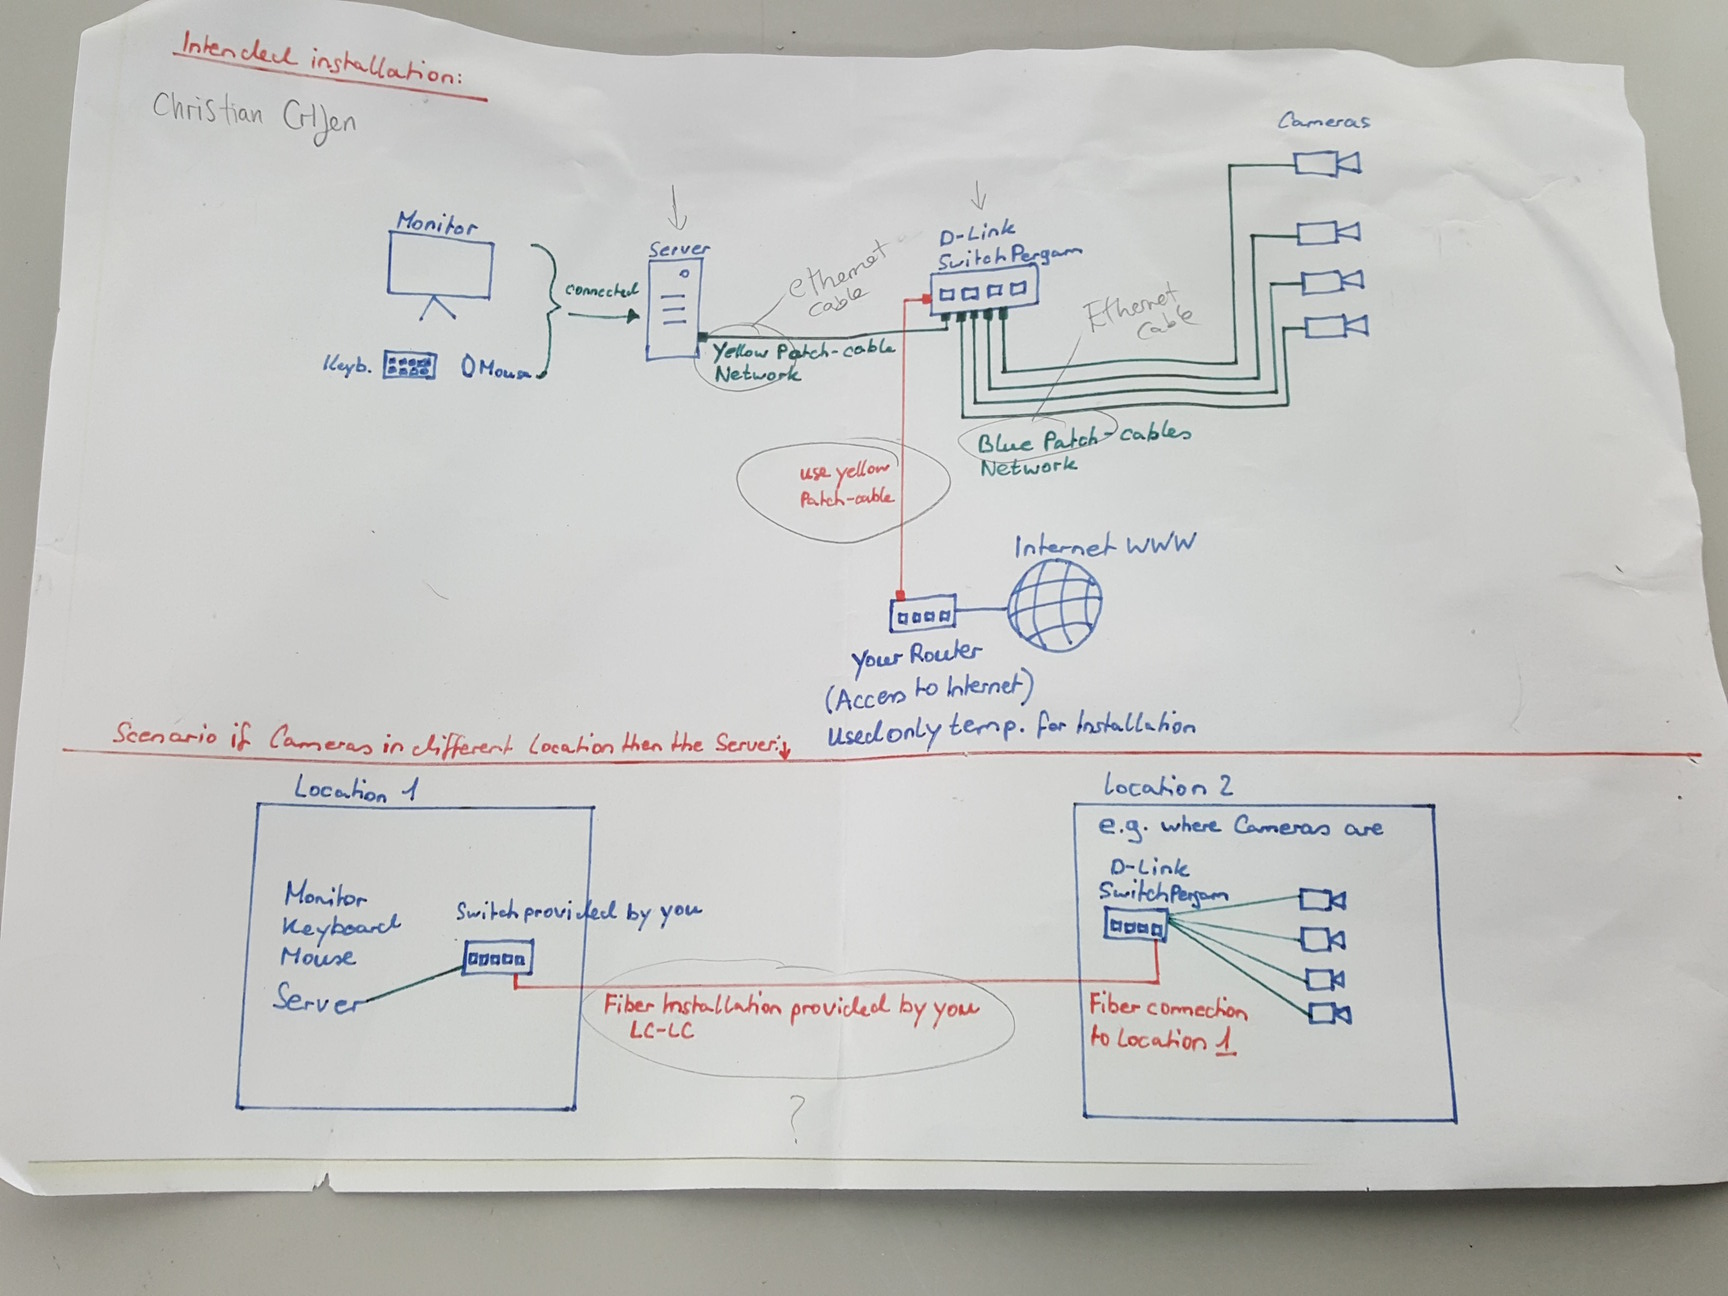 Intended installation:
Christian
Cameras
Monitor
Server
D-Link
Switch Pergam
ethernet
cable
connected
Ethernet
cable
Yellow Patch-cable
Network
Keyb.
Mouse
Blue Patch-cables
Network
use yellow
Patch-cable
Internet WWW
Your Router
(Access to Internet)
Used only temp. for Installation
Scenario if Cameras in different Location then the Server:
Location 1
Location 2
e.g. where Cameras are
D-Link
Switch Pergam
Monitor
Keyboard
Mouse
Server
Switch provided by you
Fiber Installation provided by you
LC-LC
Fiber connection
to Location 1
?